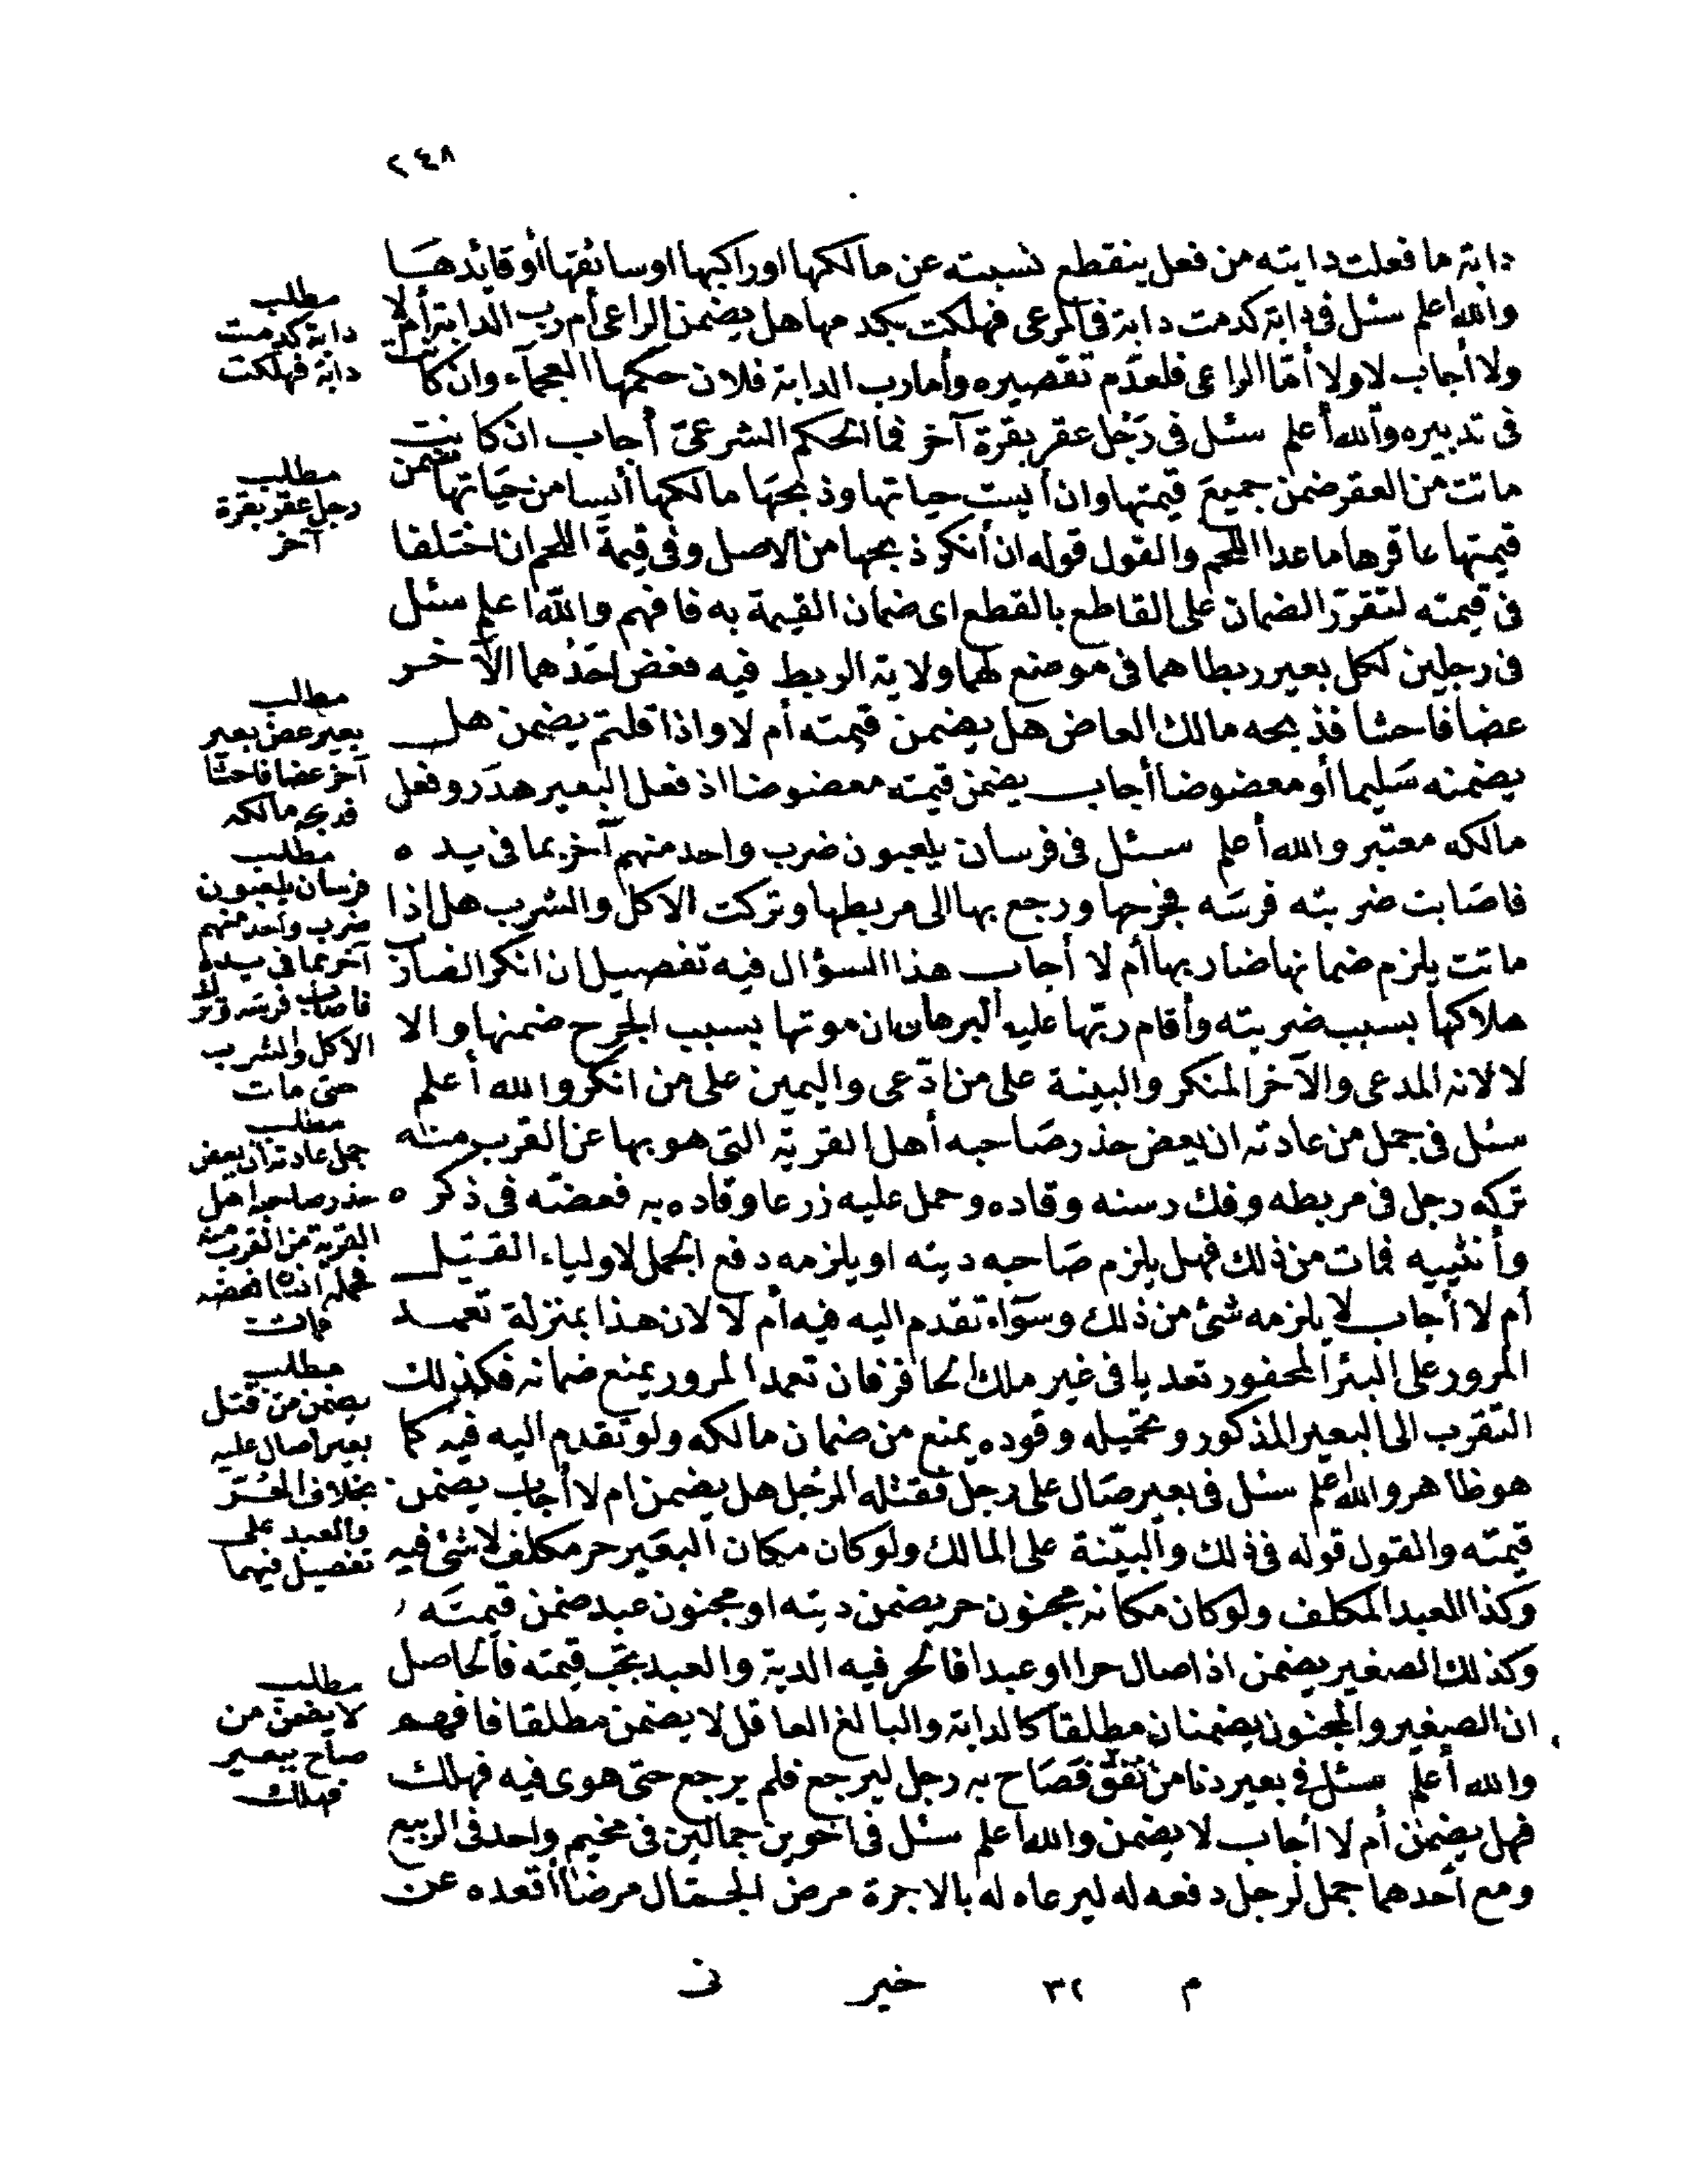 ٢٤٨
دابته ما فعلت دابته من فعل ينقطع نسبته عن مالكها او راكبها او سائقها أو قائدها
والله اعلم سئل فى دابة كدمت دابة فى المرعى فهلكت بكدمها هل يضمن الراعى أم رب الدابة أم لا
ولا أجاب لا ولا أما الراعى فلعدم تقصيره وأما رب الدابة فلان حكمها العجماء وان كانت
فى تدبيره والله أعلم سئل فى رجل عقر بقرة آخر فما الحكم الشرعى أجاب ان كانت
ماتت من العقر ضمن جميع قيمتها وان أيست حياتها وذبحها مالكها أيسا من حياتها ضمن
قيمتها عاقرها ما عدا اللحم والقول قوله ان أنكر ذبحها من الاصل وفى قيمة اللحم ان اختلفا
فى قيمته لتقرر الضمان على القاطع بالقطع اى ضمان القيمة به فافهم والله اعلم سئل
فى رجلين لكل بعير ربطاهما فى موضع لهما ولاية الربط فيه فعض احدهما الآخر
عضا فاحشا فذبحه مالك العاض هل يضمن قيمته أم لا واذا قلتم يضمن هل
يضمنه سليما أو معضوضا أجاب يضمن قيمته معضوضا اذ فعل البعير هدر وفعل
مالكه معتبر والله أعلم سئل فى فرسان يلعبون ضرب واحد منهم آخر بما فى يده
فاصابت ضربته فرسه فجرحها ورجع بها الى مربطها وتركت الاكل والشرب هل اذا
ماتت يلزم ضمانها ضاربها أم لا أجاب هذا السؤال فيه تفصيل ان انكر الضارب
هلاكها بسبب ضربته وأقام ربها عليه البرهان ان موتها بسبب الجرح ضمنها والا
لا لانه المدعى والآخر المنكر والبينة على من ادعى واليمين على من انكر والله أعلم
سئل فى جمل من عادته ان يعض حذر صاحبه أهل القرية التى هو بها عن القرب منه
تركه رجل فى مربطه وفك رسنه وقاده وحمل عليه زرعا وقاده به فعضه فى ذكره
وأنثييه فمات من ذلك فهل يلزم صاحبه ديته او يلزمه دفع الجمل لاولياء القتيل
أم لا أجاب لا يلزمه شئ من ذلك وسواء تقدم اليه فيه أم لا لان هذا بمنزلة تعمد
المرور على البئر المحفور تعديا فى غير ملك الحافر فان تعمد المرور يمنع ضمانه فكذلك
التقرب الى البعير المذكور وتحميله وقوده يمنع من ضمان مالكه ولو تقدم اليه فيه كما
هو ظاهر والله اعلم سئل فى بعير صال على رجل فقتله الرجل هل يضمن ام لا أجاب يضمن
قيمته والقول قوله فى ذلك والبينة على المالك ولو كان مكان البعير حر مكلف لا شئ فيه
وكذا العبد المكلف ولو كان مكانه مجنون حر يضمن ديته او مجنون عبد ضمن قيمته
وكذلك الصغير يضمن اذا صال حرا او عبدا فالحر فيه الدية والعبد يجب قيمته فالحاصل
ان الصغير والمجنون يضمنان مطلقا كالدابة والبالغ العاقل لا يضمن مطلقا فافهم
والله أعلم سئل فى بعير دنا من فصاح به رجل ليرجع فلم يرجع حتى هوى فيه فهلك
فهل يضمن أم لا أجاب لا يضمن والله اعلم سئل فى اخوين جمالين فى مخيم واحد فى الربيع
ومع أحدهما جمل لرجل دفعه له ليرعاه له بالاجرة مرض الجمال مرضا أقعده عن
مطلب
دابة كدمت
دابة فهلكت
مطلب
رجل عقر بقرة
آخر
مطلب
بعير عض بعير
آخر عضا فاحشا
فذبحه مالكه
مطلب
فرسان يلعبون
ضرب واحد منهم
آخر بما فى يده
فاصاب فرسه وترك
الاكل والشرب
حتى مات
مطلب
جمل عادته ان يعض
حذر صاحبه اهل
القرية من القرب منه
فحمله انسان فعضه
فمات
مطلب
يضمن من قتل
بعيرا صال عليه
بخلاف الحر
والعبد على
تفصيل فيهما
مطلب
لا يضمن من
صاح ببعير
فهلك
م ٣٢ خير نى